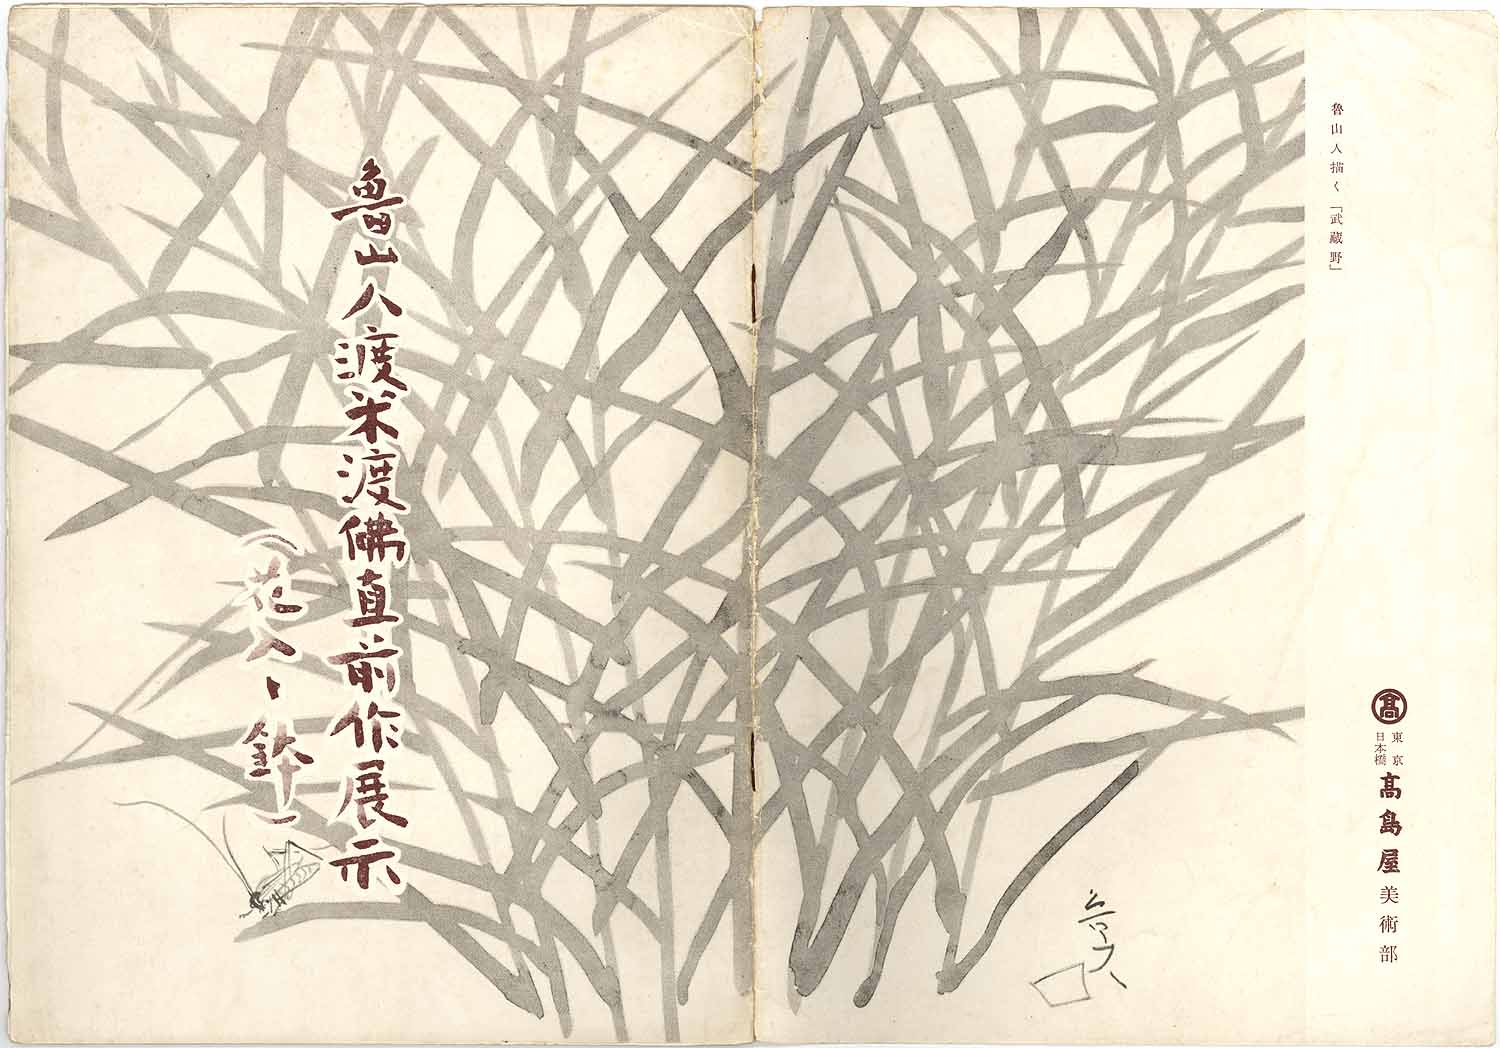 魯山人描く「武蔵野」
髙
東京
日本橋
髙島屋美術部
魯山人渡米渡佛直前作展示
(花入、鉢)